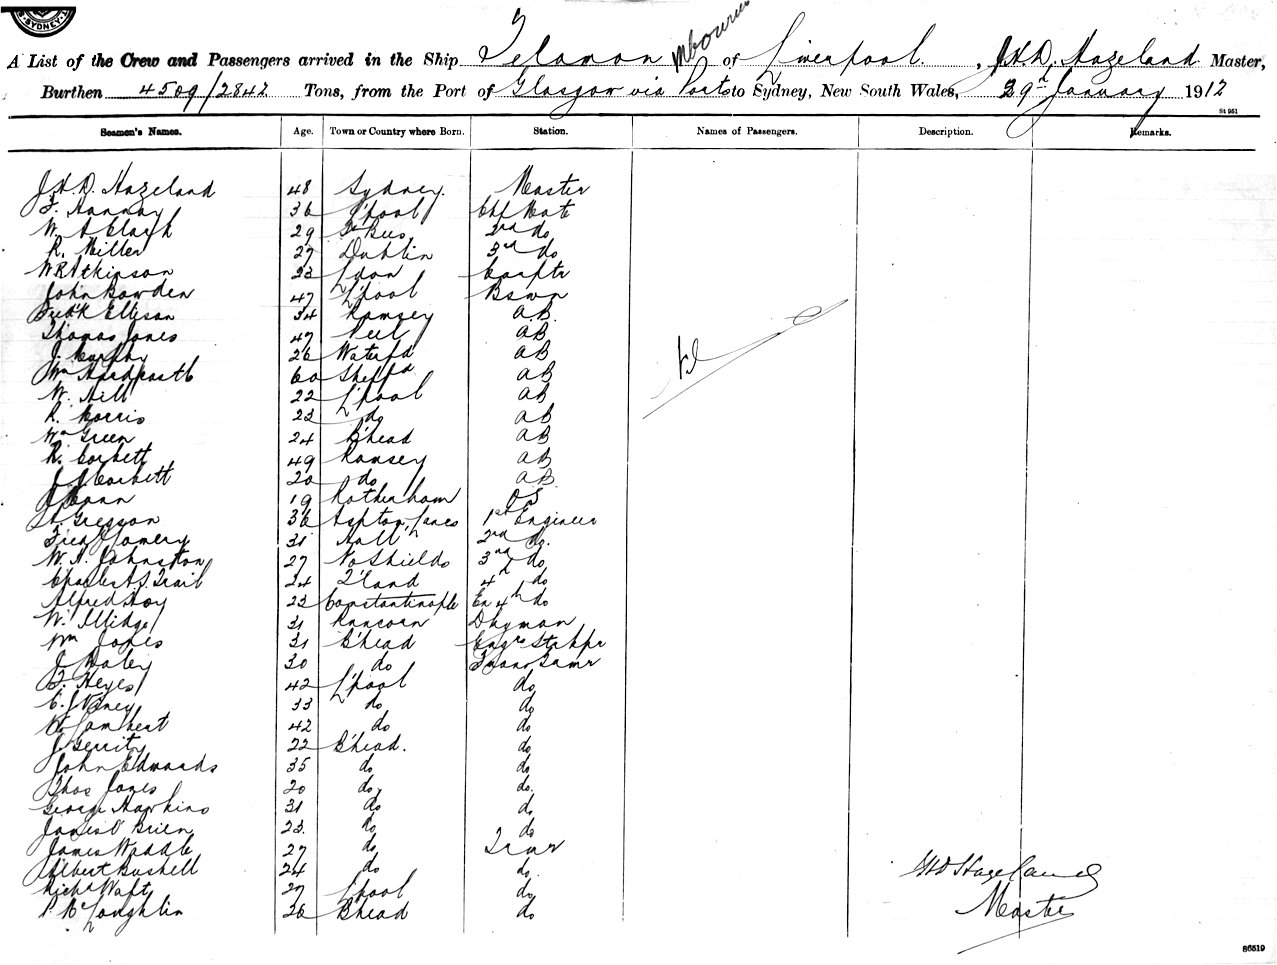 SYDNEY
A List of the Crew and Passengers arrived in the Ship Telamon of Liverpool, J.H.D. Hazeland Master,
Burthen 4509/2842 Tons, from the Port of Glasgow via Ports to Sydney, New South Wales, 29th January 1912
St 951
Seamen's Names. Age. Town or Country where Born. Station. Names of Passengers. Description. Remarks.
J.H.D. Hazeland 48 Sydney. Master
F. Hannay 36 L'pool Chf Mate
W. A Clark 29 2nd do
R. Miller 27 Dublin 3rd do
W R Atkinson 23 L'don Carptr
John Bowden 47 L'pool Bswn
Fredk Ellison 34 Ramsey A.B.
Thomas Jones 47 Peel AB
J. Murphy 26 Waterfd AB
Wm 60 Sheffd AB
W. Hill 22 L'pool AB
R. Morris 23 do AB
Wm Green 24 B'head AB
R. Corkett 49 Ramsey AB
J J Corkett 20 do AB
19 Rotherham OS
Gresson 36 Ashton, Lancs 1st Engineer
31 Hull 2nd do.
W. H. Johnston 27 No Shields 3rd do
Charles A S Trail 24 4th do
Alfred Hoy 23 Constantinople Ex 4th do
W. Illidge 31 Runcorn Dkyman
Wm Jones 31 B'head Engrs Stkpr
J Daley 30 do
F. Heyes 42 L'pool do
C. J Viney 33 do do
W Lambert 42 do do
J Gerrity 22 B'head. do
John Edwards 35 do do
Thos Jones 20 do, do.
George Hawkins 31 do do
James O'Brien 23. do do
James Waddle 27 do Trmr
Albert Bushell 24 do do.
Richd Waft 27 L'pool do
P. McLoughlin 26 B'head do
JHD Hazeland
Master
86519